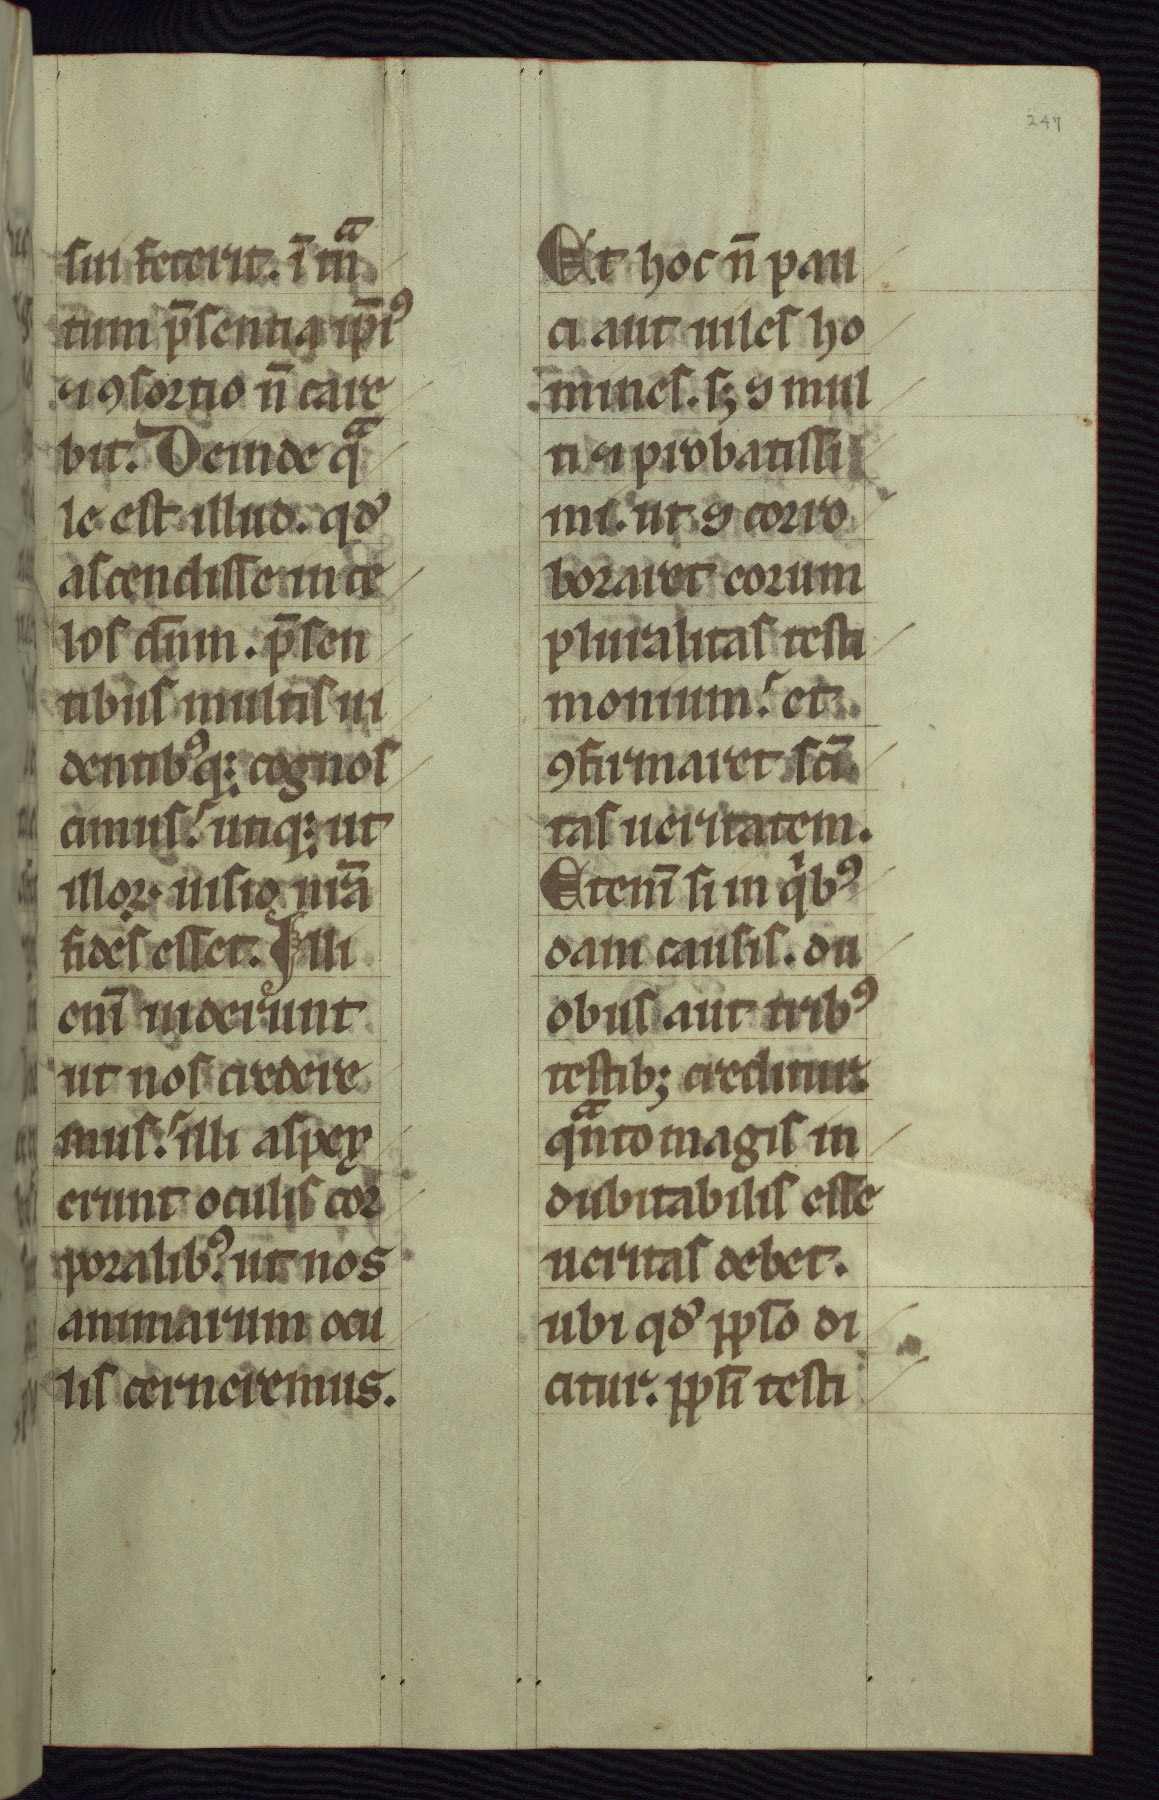 247
sui fecerit. ī mᷓ
tum p̄sentia ip̄iꝰ
⁊ ꝯsortio n̄ care
bit. Deinde qᷓ
le est illud. qd̕
ascendisse in ce
los dn̄m. p̄sen
tibus multis ui
dentibꝰq; cognos
cimus. utiq; ut
illoꝝ uisio nr̄a
fides esset. Illi
eni̅ uiderunt
ut nos credere
mus. illi aspex
erunt oculis cor
poralibꝰ. ut nos
animarum ocu
lis cerneremus.
Et hoc n̄ pau
ci aut uiles ho
mines. s; ꝯ mul
ti ⁊ probatissi
mi. ut ꝯ corro
boraret eorum
pluralitas testi
monium. et
ꝯfirmaret sc̄i
tas ueritatem.
Eteni̅ si in qͥbꝰ
dam causis. du
obus aut tribꝰ
testib; creditur.
qᷓnto magis in
dubitabilis esse
ueritas debet.
ubi qd̕ ppl̄o di
citur. ppl̄i testi